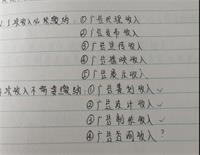 收入必须缴纳：①广告代理收入
②广告发布收入
③广告宣传收入
④广告播映收入
⑤广告展示收入
收入不需要缴纳：①广告策划收入✓
②广告设计收入✓
③广告制作收入✓
④广告
收入？